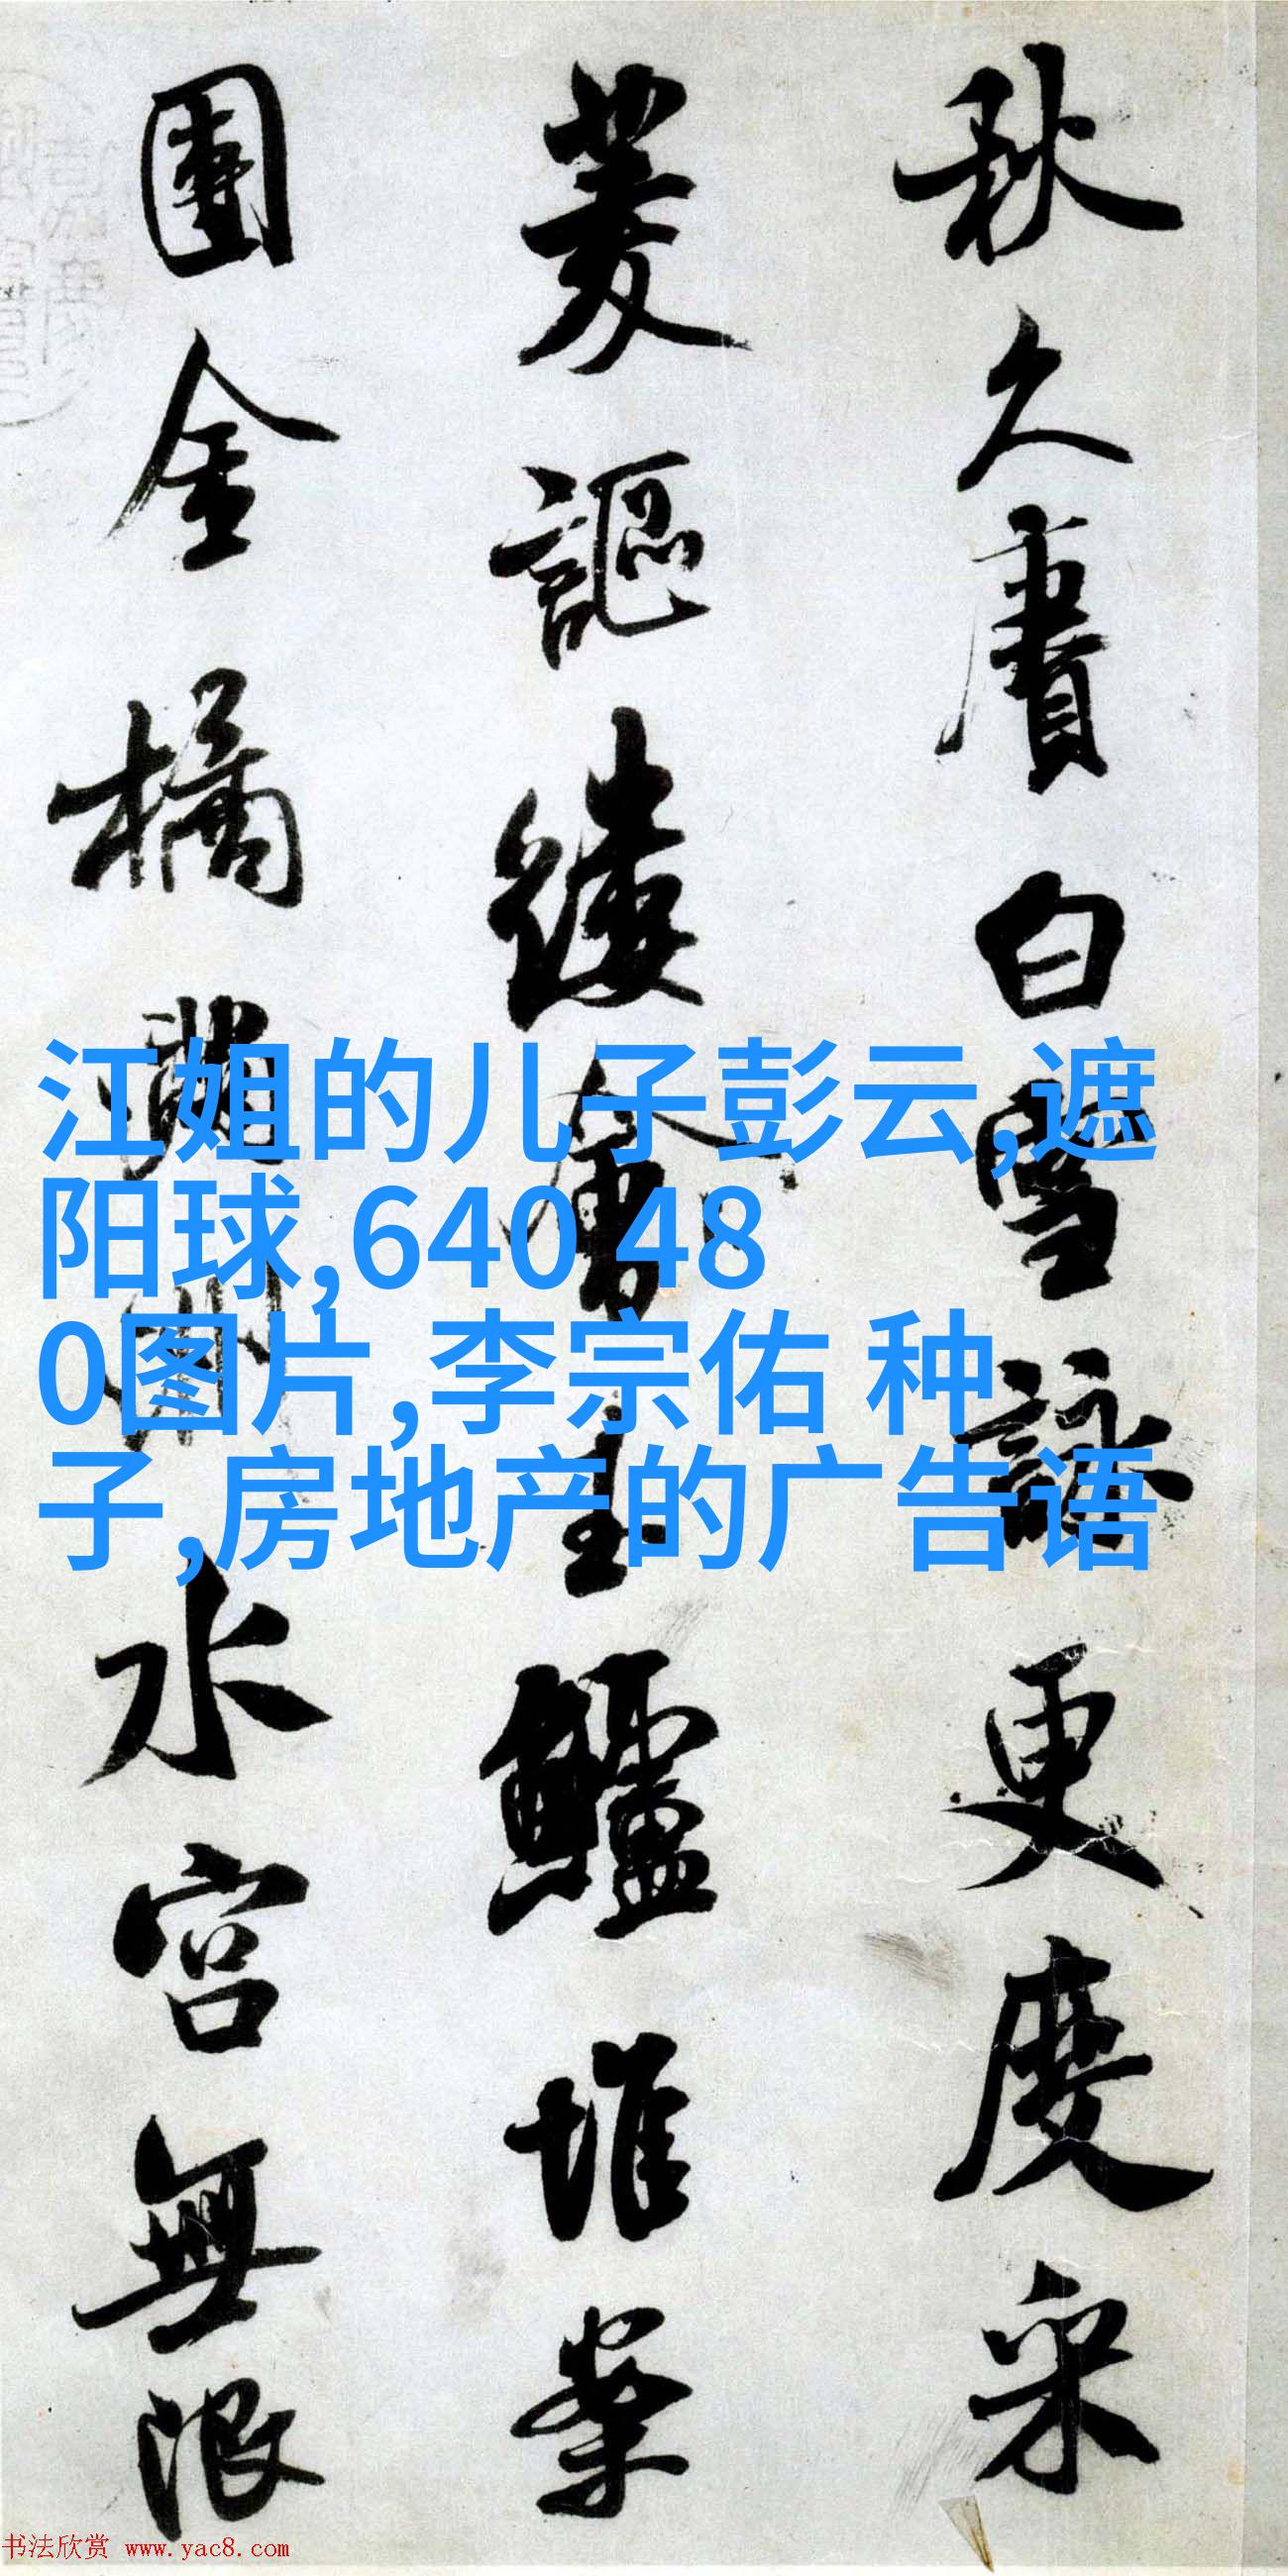 秋久賡白雪詠更度采
菱謳縷會玉鱸堆案
團金橘滿洲水宮無限
江姐的儿子彭云,遮
阳球,640 48
0图片,李宗佑 种
子,房地产的广告语
书法欣赏 www.yac8.com